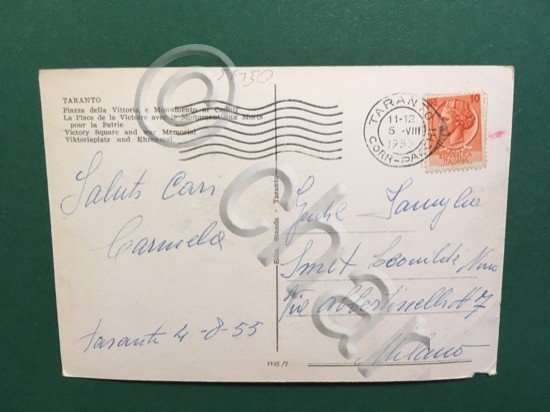 35750
TARANTO
Piazza della Vittoria e Monumento ai Caduti
La Place de la Victoire avec le Monument aux Morts
pour la Patrie
Victory Square and War Memorial
Viktoriaplatz und Ehrenmal
TARANTO
11-12
5 -VIII
1955
CORR-PAC
Saluti Cari
Carmela
Taranto 4-8-55
Ediz. Standa - Taranto
Gent.le Famiglia
Smit Leonilde
Via Albertinelli N 7
Milano
1125/7
© Char